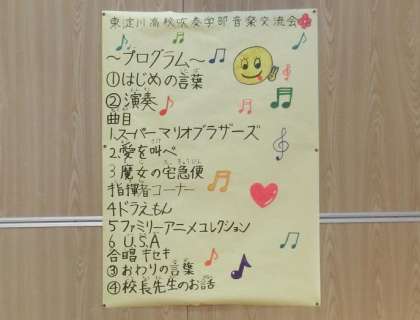 東淀川高校吹奏学部音楽交流会
～プログラム～
①はじめの言葉
②演奏
曲目
1.スーパーマリオブラザーズ
2.愛を叫べ
3 魔女の宅急便
指揮者コーナー
4 ドラえもん
5 ファミリーアニメコレクション
6 U.S.A
合唱 キセキ
③おわりの言葉
④校長先生のお話